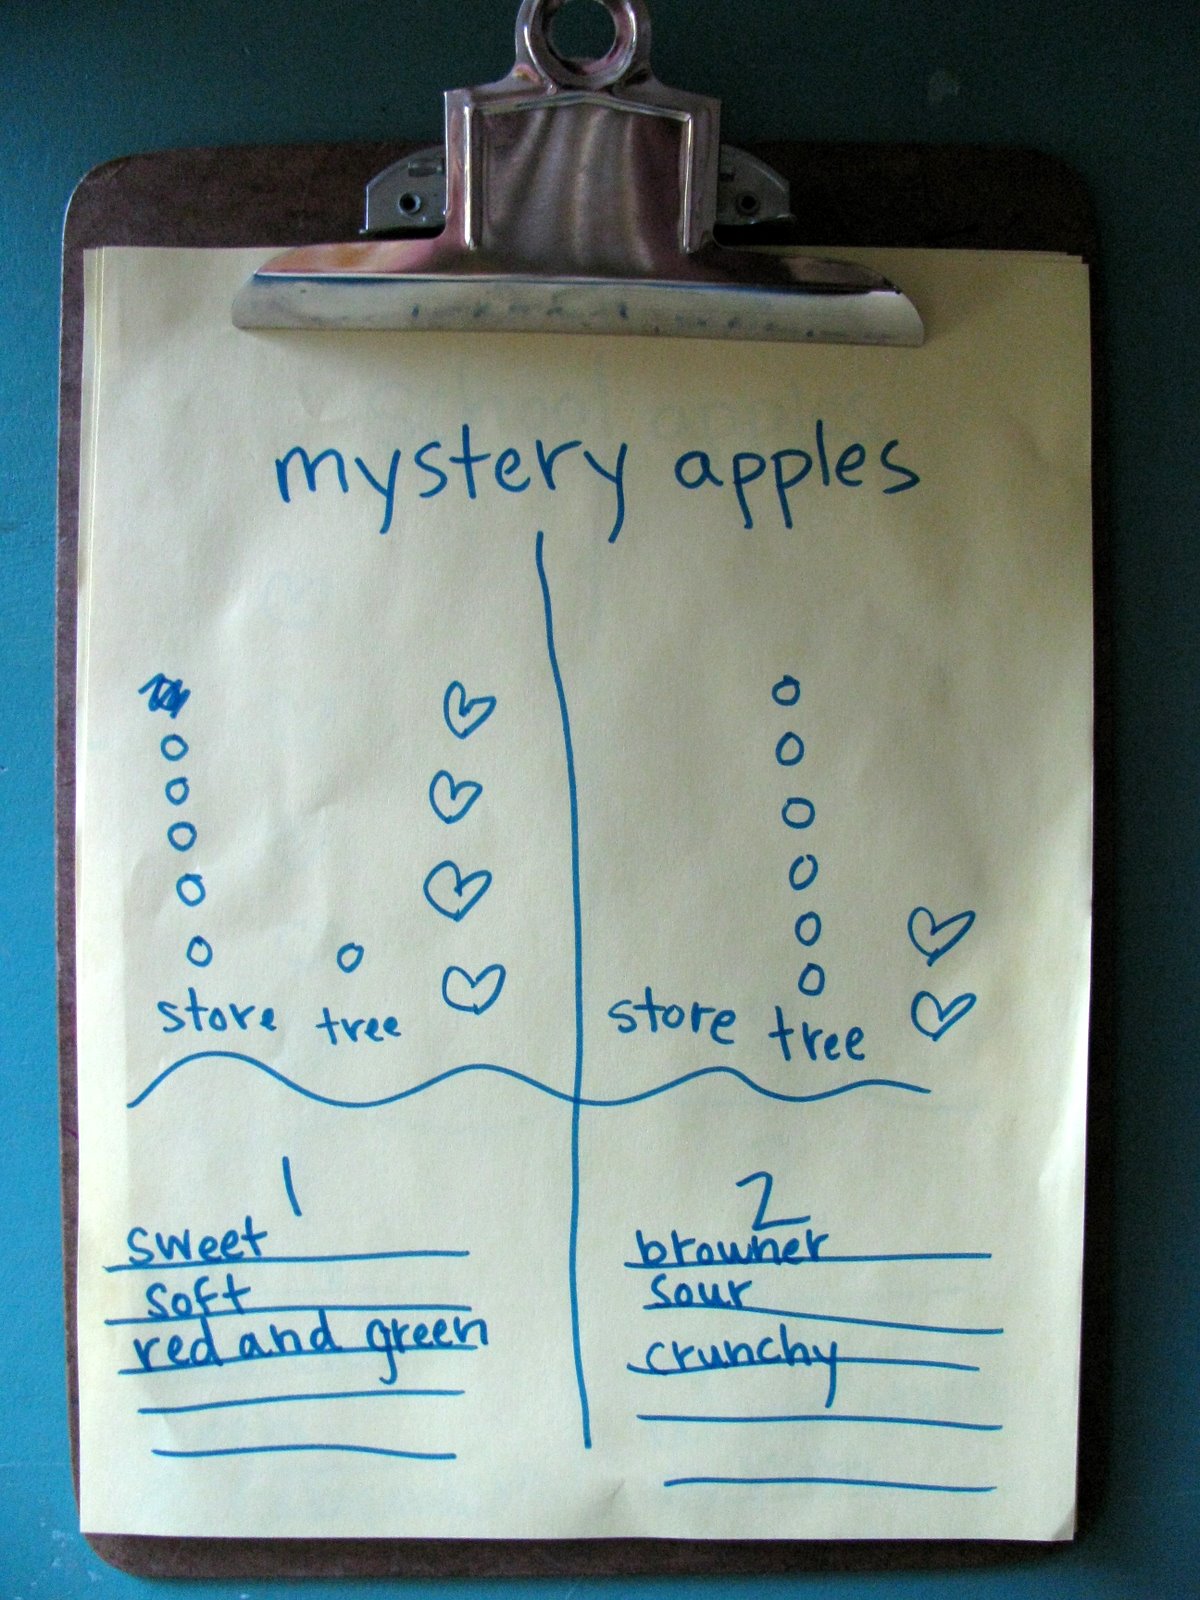 mystery apples
store tree
store tree
1
sweet
soft
red and green
2
browner
sour
crunchy